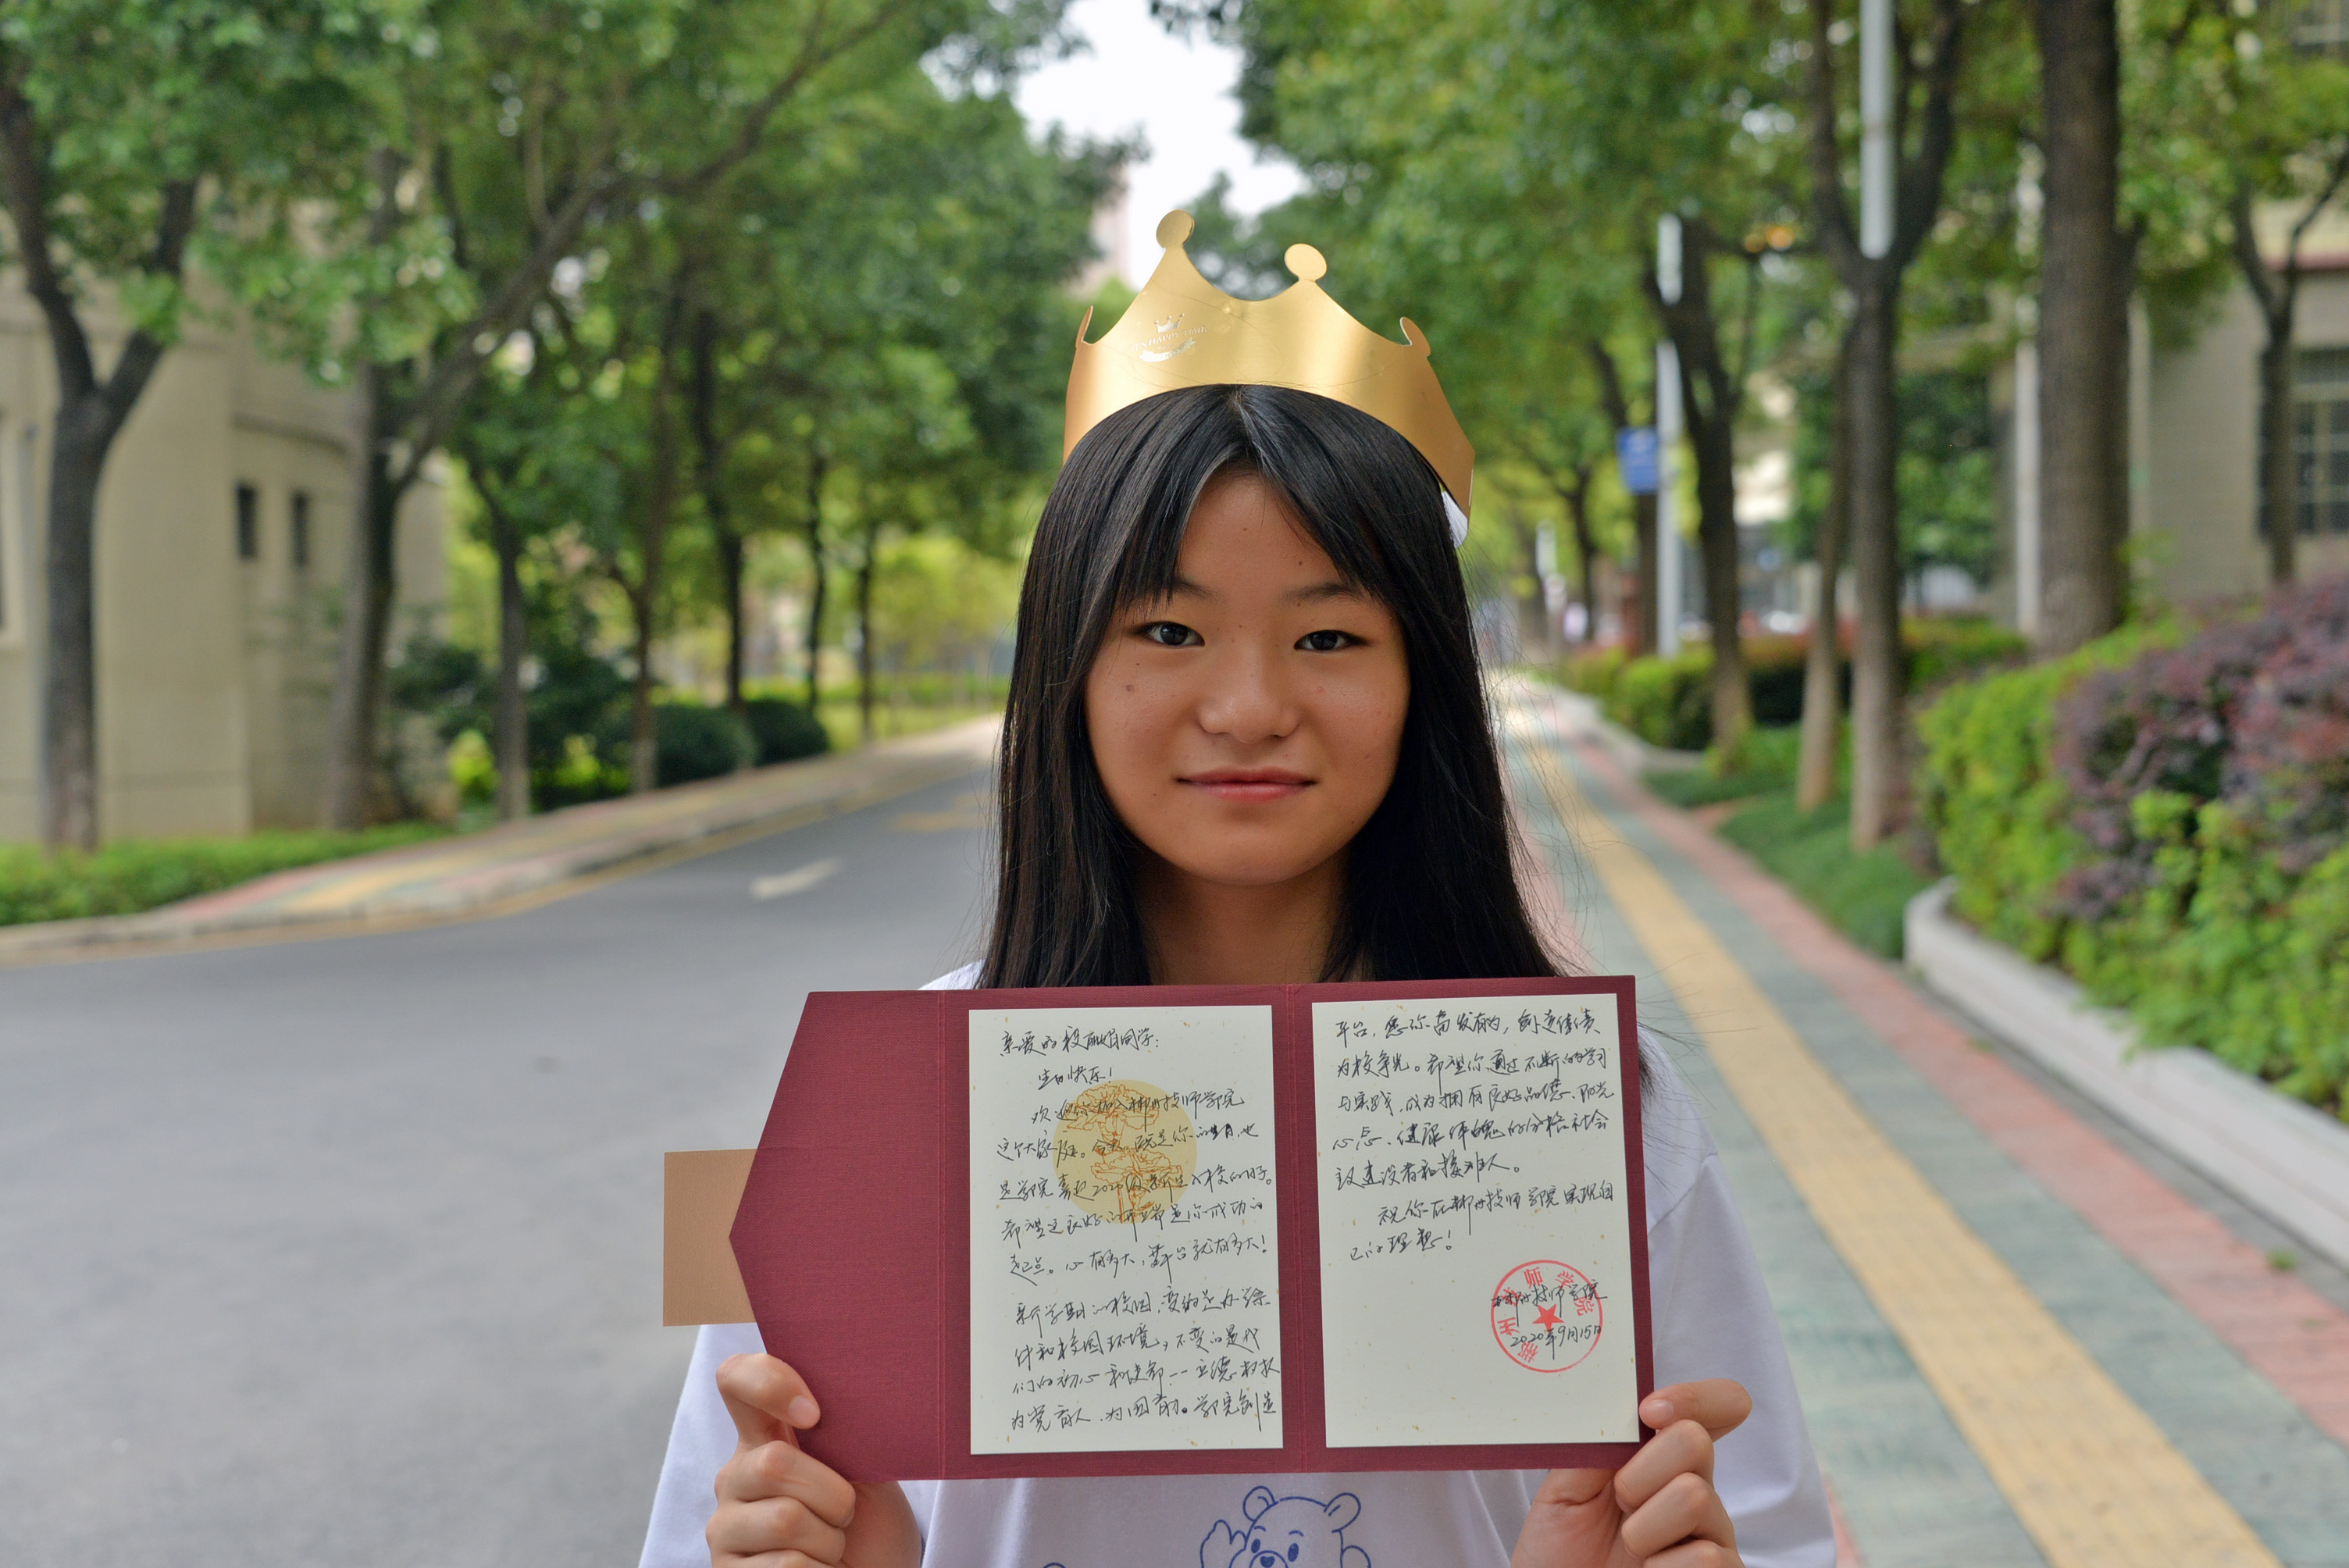 IT'S HAPPY TIME
亲爱的 同学:
生日快乐!
欢迎你加入郴州技师学院
这个大家庭。今天既是你的生日,也
是学院喜迎2020级新生入校的日子。
希望这良好的开端是你成功的
起点。心有多大,舞台就有多大!
新学期的校园,变的是办学条
件和校园环境,不变的是我
们的初心和使命--立德树人
为党育人、为国育才。学院创造
平台,愿你奋发有为,创造佳绩
为校争光。希望你通过不断的学习
与实践,成为拥有良好品德、阳光
心态、健康体魄的合格社会
主义建设者和接班人。
祝你在郴州技师学院实现自
己的理想!
郴州技师学院
2020年9月15日
郴州技师学院